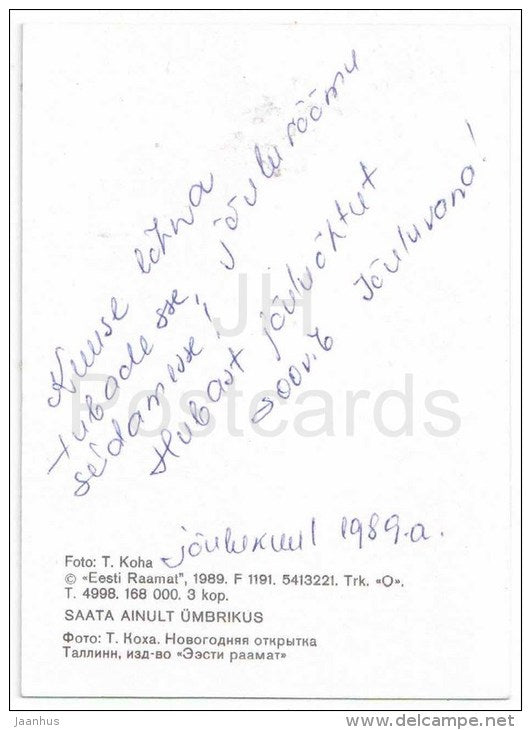 Kuuse lõhna
tubadesse, jõulurõõmu
südamesse!
Hubast jõuluõhtut
soovib Jõuluvana!
jõulukuul 1989.a.
Foto: T. Koha
© «Eesti Raamat", 1989. F 1191. 5413221. Trk. «O».
T. 4998. 168 000. 3 kop.
SAATA AINULT ÜMBRIKUS
Фото: Т. Коха. Новогодняя открытка
Таллинн, изд-во «Ээсти раамат»
JH
Postcards
jaanhus
www.delcampe.net